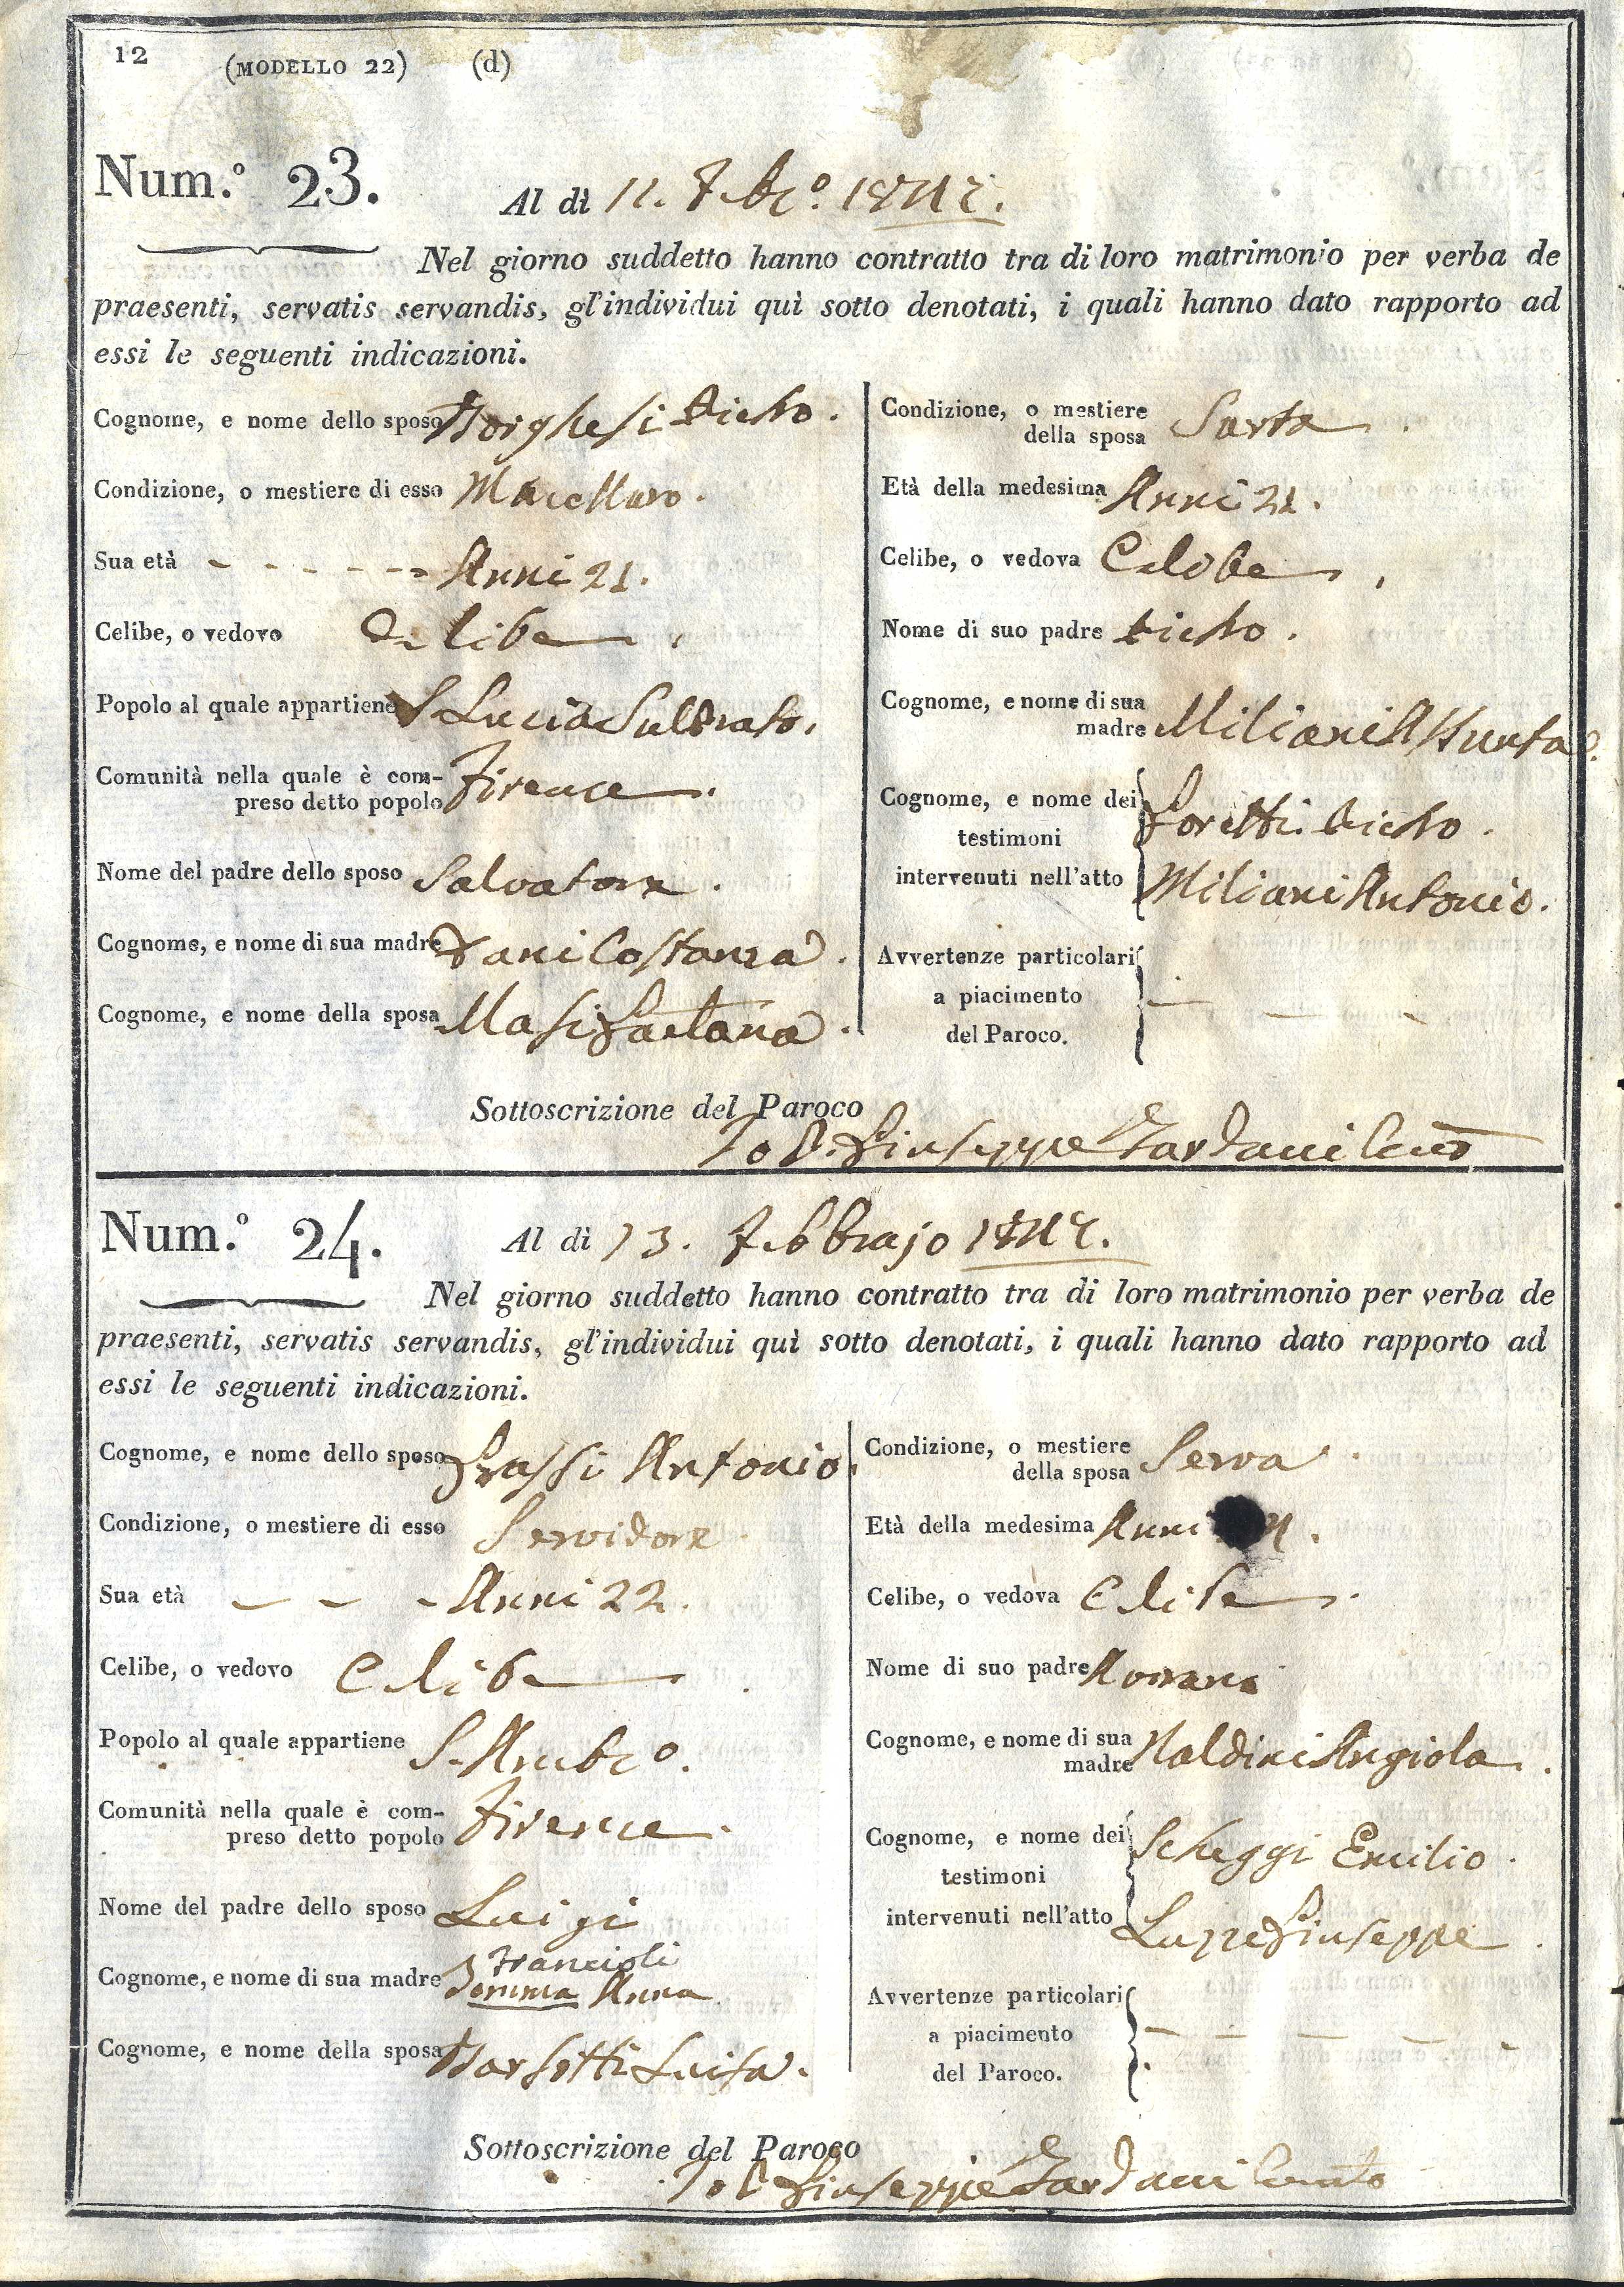 12 (MODELLO 22) (d)
Num.º 23. Al dì 11. Febº.
Nel giorno suddetto hanno contratto tra di loro matrimonio per verba de
praesenti, servatis servandis, gl'individui quì sotto denotati, i quali hanno dato rapporto ad
essi le seguenti indicazioni.
Cognome, e nome dello sposo Borghesi
Condizione, o mestiere di esso Macellaro.
Sua età - - - - - - Anni 21.
Celibe, o vedovo Celibe
Popolo al quale appartiene S Lucia Sul Prato.
Comunità nella quale è com-
preso detto popolo Firenze.
Nome del padre dello sposo Salvatore.
Cognome, e nome di sua madre Costanza.
Cognome, e nome della sposa Masi Gaetana.
Condizione, o mestiere
della sposa Sarta.
Età della medesima Anni 21.
Celibe, o vedova Celibe
Nome di suo padre
Cognome, e nome di sua
madre Miliani Assunta
Cognome, e nome dei
testimoni
intervenuti nell'atto
Miliani Antonio.
Avvertenze particolari
a piacimento
del Paroco.
Sottoscrizione del Paroco
Io P. Giuseppe
Num.º 24. Al dì 13. Febbrajo
Nel giorno suddetto hanno contratto tra di loro matrimonio per verba de
praesenti, servatis servandis, gl'individui quì sotto denotati, i quali hanno dato rapporto ad
essi le seguenti indicazioni.
Cognome, e nome dello sposo Grassi Antonio.
Condizione, o mestiere di esso Servidore.
Sua età - - - Anni 22.
Celibe, o vedovo Celibe
Popolo al quale appartiene S. Ambrº.
Comunità nella quale è com-
preso detto popolo Firenze.
Nome del padre dello sposo Luigi
Francioli
Cognome, e nome di sua madre Anna
Cognome, e nome della sposa Luisa.
Condizione, o mestiere
della sposa Serva.
Età della medesima Anni
Celibe, o vedova Celibe
Nome di suo padre
Cognome, e nome di sua
madre Naldini Angiola.
Cognome, e nome dei Scheggi Emilio.
testimoni
intervenuti nell'atto Giuseppe
Avvertenze particolari
a piacimento
del Paroco.
Sottoscrizione del Paroco
Io P Giuseppe